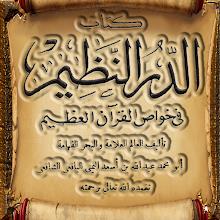 كتاب
الدر النظيم
في خواص القرآن العظيم
تأليف العالم العلامة والبحر الفهامة
أبو محمد عبدالله بن أسعد اليمني اليافعي الشافعي
تغمده الله تعالى برحمته